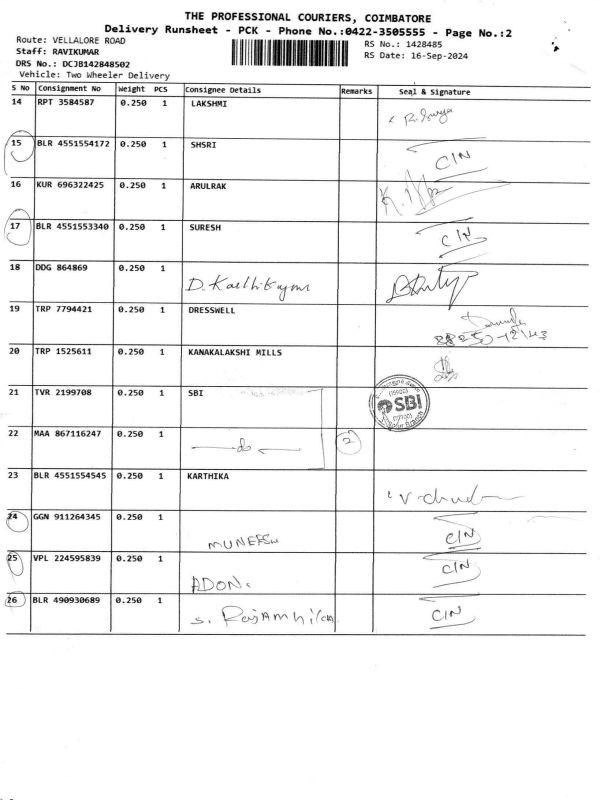 THE PROFESSIONAL COURIERS, COIMBATORE
Delivery Runsheet - PCK - Phone No.:0422-3505555 - Page No.:2
Route: VELLALORE ROAD
RS No.: 1428485
Staff: RAVIKUMAR
RS Date: 16-Sep-2024
DRS No.: DCJB142848502
Vehicle: Two Wheeler Delivery
S No Consignment No Weight PCS Consignee Details Remarks Seal & Signature
14 RPT 3584587 0.250 1 LAKSHMI
15 BLR 4551554172 0.250 1 SHSRI CIN
16 KUR 696322425 0.250 1 ARULRAK
17 BLR 4551553340 0.250 1 SURESH CIN
18 DDG 864869 0.250 1
19 TRP 7794421 0.250 1 DRESSWELL
20 TRP 1525611 0.250 1 KANAKALAKSHI MILLS
21 TVR 2199708 0.250 1 SBI SBI
22 MAA 867116247 0.250 1 do 2
23 BLR 4551554545 0.250 1 KARTHIKA
24 GGN 911264345 0.250 1 CIN
25 VPL 224595839 0.250 1 ADON. CIN
26 BLR 490930689 0.250 1 CIN